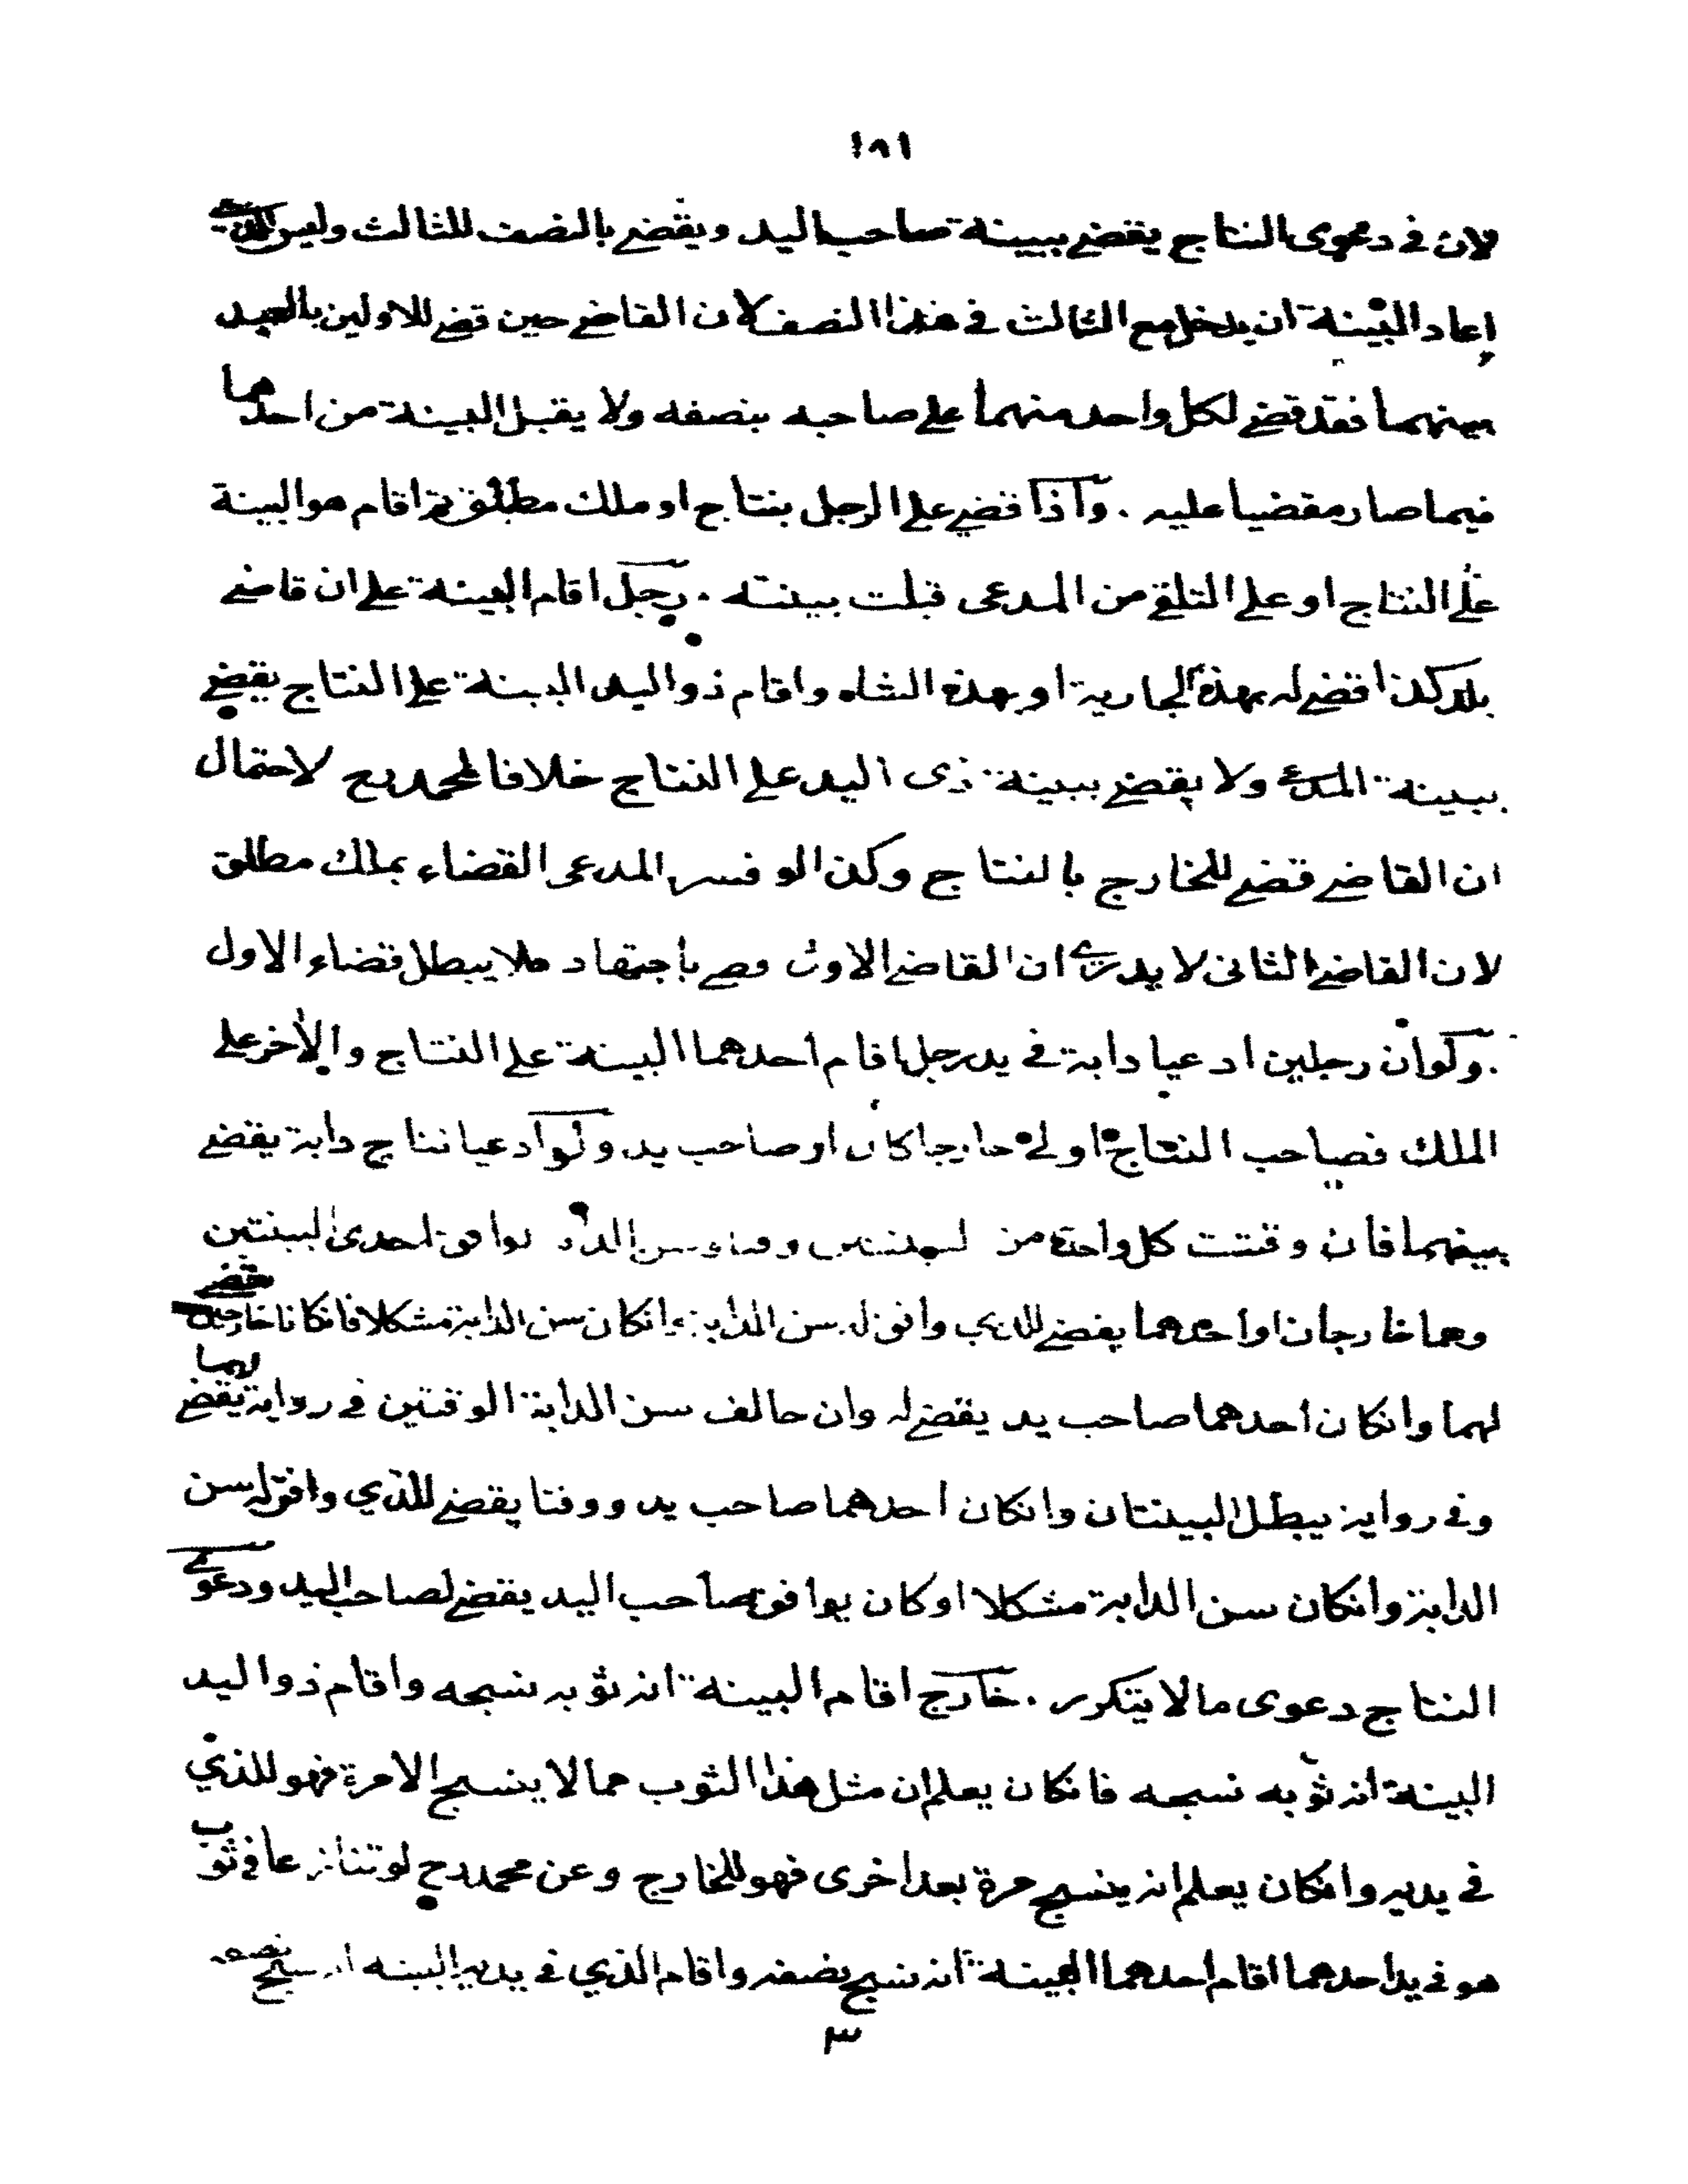 ١٨١
لان في دعوى النتاج يقضي ببينة صاحب اليد ويقضي بالنصف للثالث وليس للذي
اعاد البينة ان يدخل مع الثالث في هذا النصف لان القاضي حين قضى للاولين بالعبد
بينهما فقد قضى لكل واحد منهما على صاحبه بنصفه ولا يقبل البينة من احدهما
فيما صار مقضيا عليه . واذا قضي على الرجل بنتاج او ملك مطلق ثم اقام هو البينة
على النتاج او على التلقي من المدعى قبلت بينته . رجل اقام البينة على ان قاضي
بلد كذا قضى له بهذه الجارية او بهذه الشاه واقام ذو اليد البينة على النتاج يقضي
ببينة المدعي ولا يقضى ببينة ذى اليد على النتاج خلافا لمحمد رح لاحتمال
ان القاضي قضى للخارج بالنتاج وكذا لو فسر المدعى القضاء بملك مطلق
لان القاضي الثانى لا يدري ان القاضي الاول قضى باجتهاد فلا يبطل قضاء الاول
. ولو ان رجلين ادعيا دابة في يد رجل اقام احدهما البينة على النتاج والاخر على
الملك فصاحب النتاج اولى خارجا كان او صاحب يد ولو ادعيا نتاج دابة يقضي
بينهما فان وقتت كل واحدة من البينتين وقتا وسن الدابة يوافق احدى البينتين
وهما خارجان او احدهما يقضي للذي وافق له سن الدابة وانكان سن الدابة مشكلا فانكانا خارجين قضي
لهما وانكان احدهما صاحب يد يقضى له وان خالف سن الدابة الوقتين في رواية يقضي لهما
وفي رواية يبطل البينتان وانكان احدهما صاحب يد ووقتا يقضي للذي وافق له سن
الدابة وانكان سن الدابة مشكلا او كان يوافق صاحب اليد يقضى لصاحب اليد ودعوى
النتاج دعوى مالا يتكرر . خارج اقام البينة انه ثوبه نسجه واقام ذو اليد
البينة انه ثوبه نسجه فانكان يعلم ان مثل هذا الثوب مما لا ينسج الا مرة فهو للذي
في يديه وانكان يعلم انه ينسج مرة بعد اخرى فهو للخارج وعن محمد رح لو تنازعا في ثوب
هو في يد احدهما اقام احدهما البينة انه نسج نصفه واقام الذي في يديه البينه انه نسج نصفه
٣